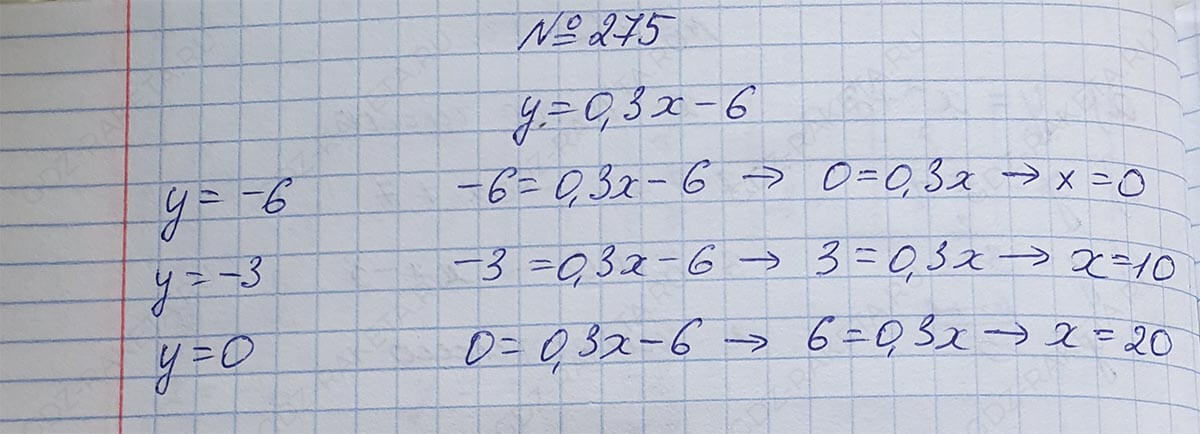 № 275
y = 0,3x - 6
y = -6 -6 = 0,3x - 6 → 0 = 0,3x → x = 0
y = -3 -3 = 0,3x - 6 → 3 = 0,3x → x = 10
y = 0 0 = 0,3x - 6 → 6 = 0,3x → x = 20